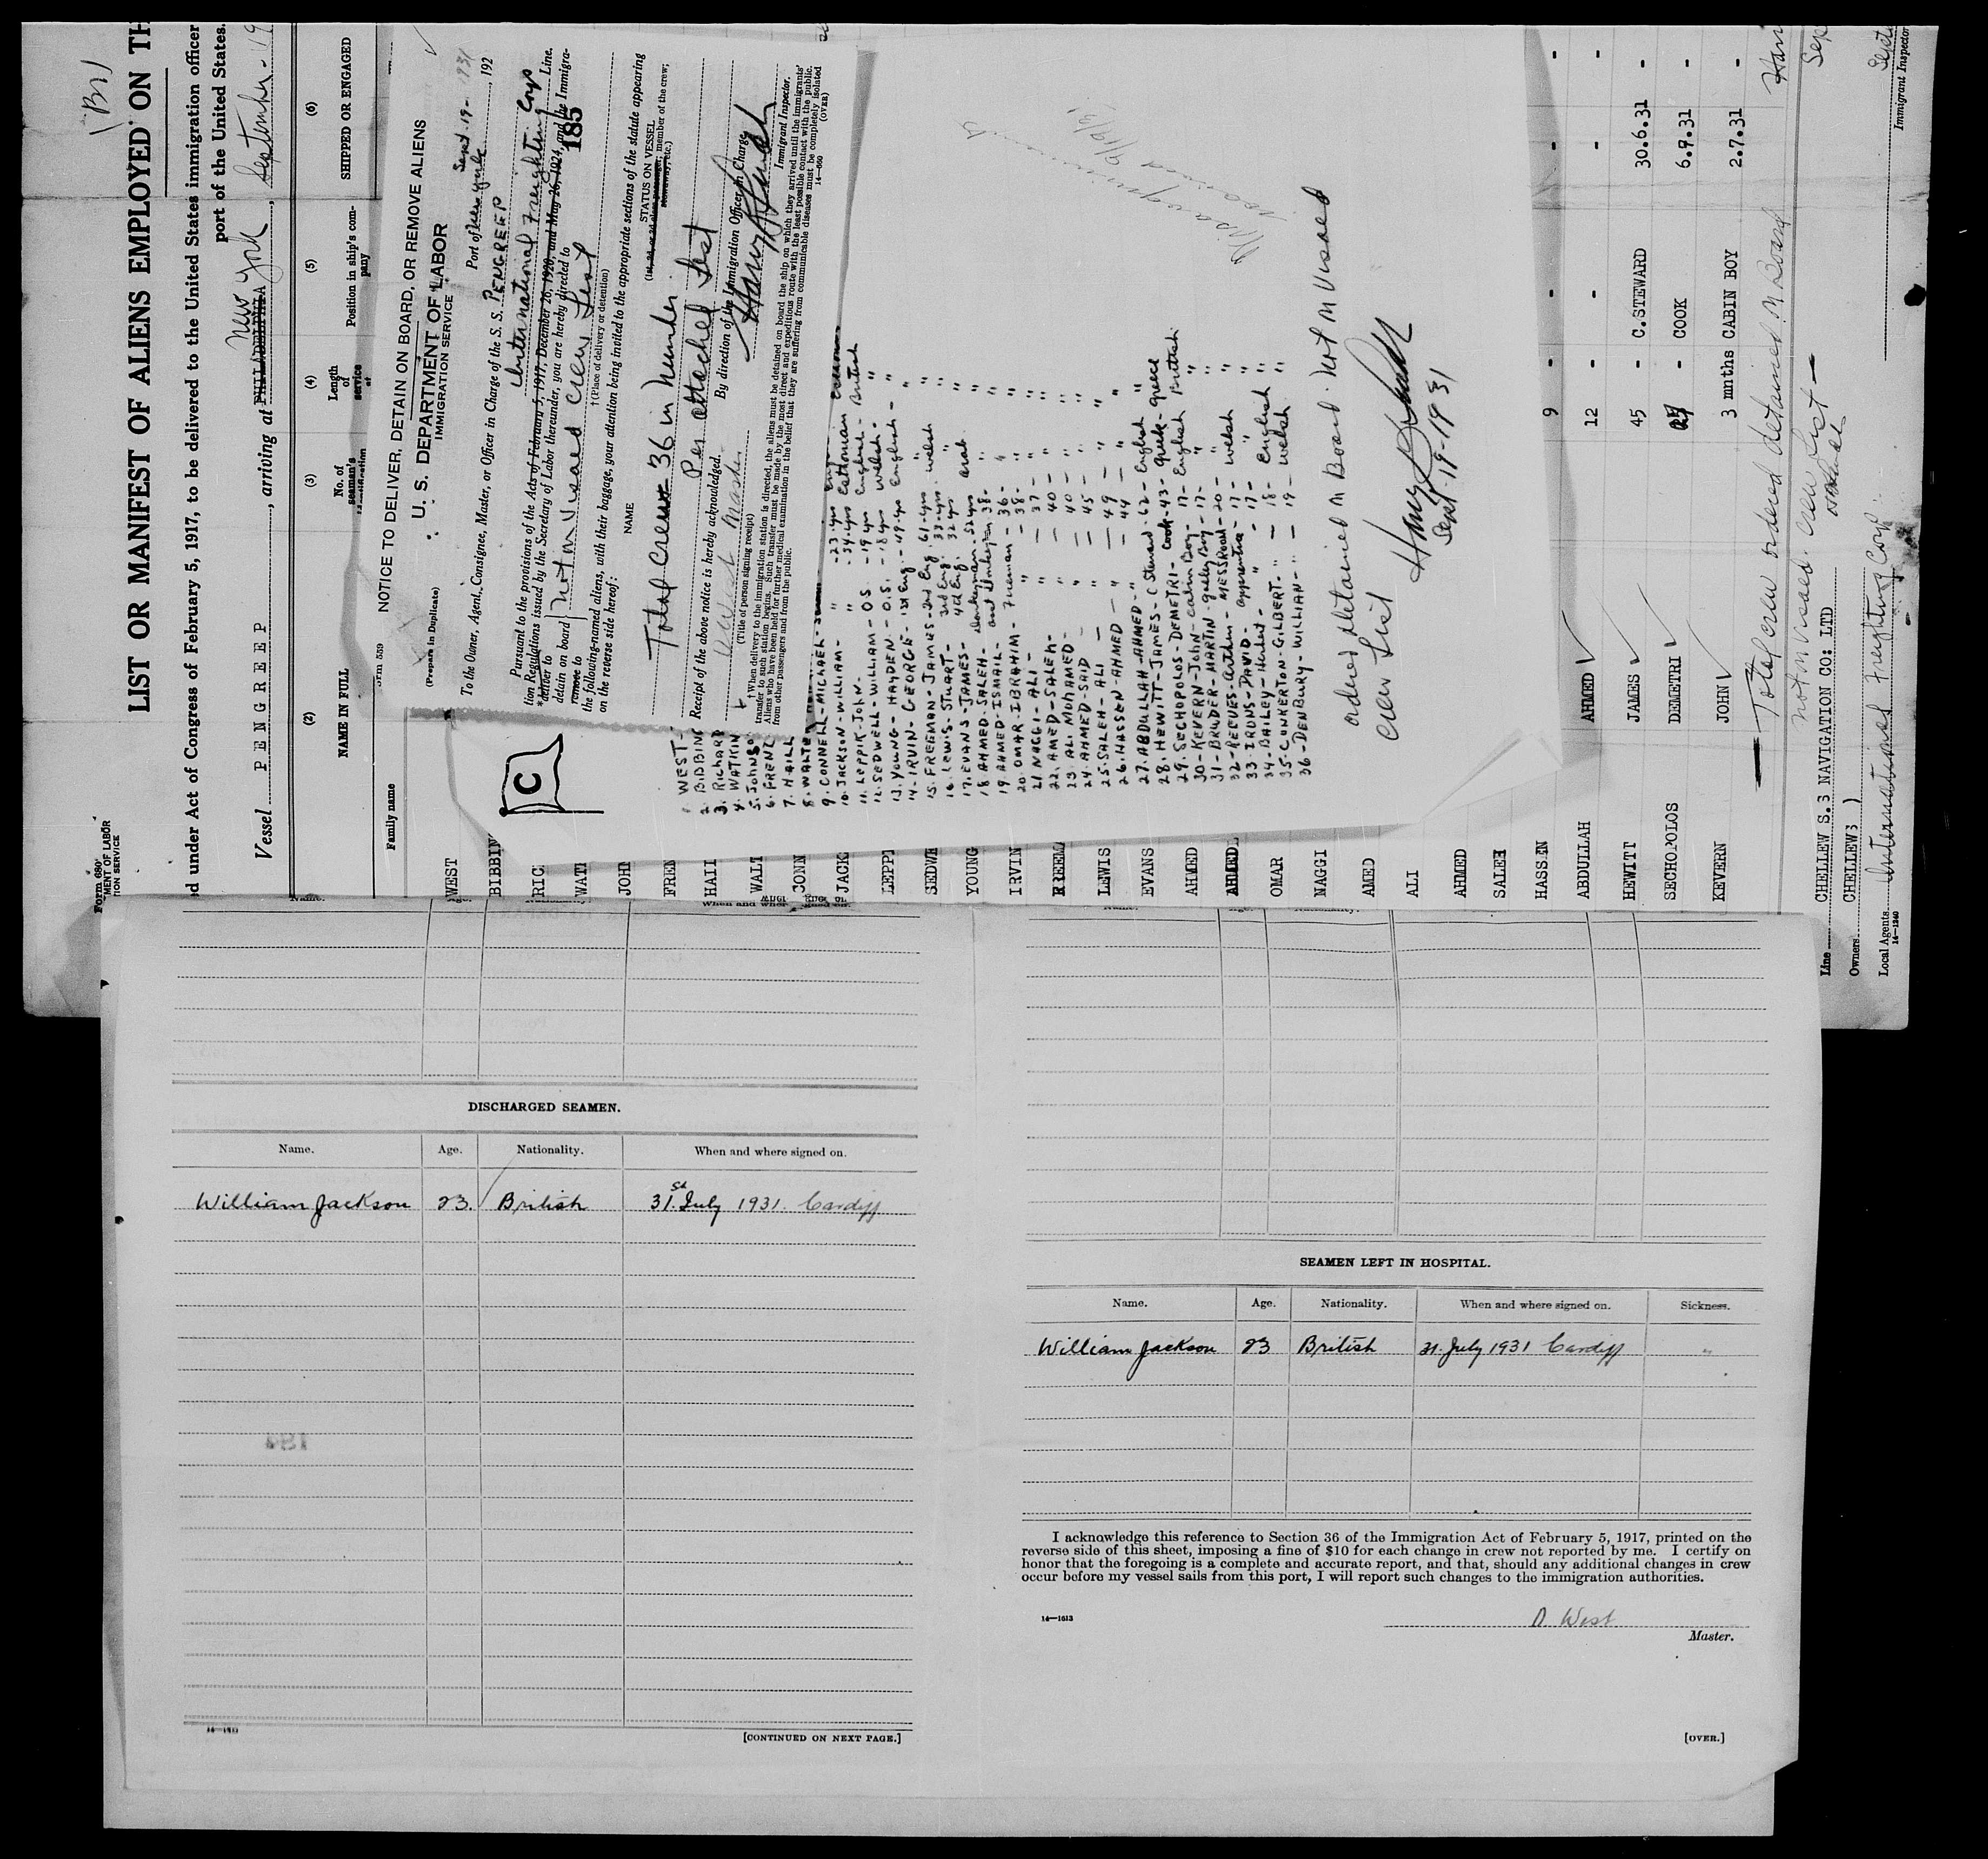 Form 680
LIST OR MANIFEST OF ALIENS EMPLOYED ON TH
d under Act of Congress of February 5, 1917, to be delivered to the United States immigration officer
port of the United States.
Vessel PENGREEP, arriving at PHILADELPHIA New York, September - 19
(2) (3) (4) (5) (6)
NAME IN FULL
No. of seaman's
Length of service at
Position in ship's company
SHIPPED OR ENGAGED
Family name
WEST
BIBBIN
RIC
WAT
JOHN
FREN
HAIL
WALT
CONN
JACK
LEPP
SEDWE
YOUNG
IRVIN
FREEM
LEWIS
EVANS
AHMED
AHMED
OMAR
NAGGI
AMED
ALI
AHMED
SALEH
HASSEN 9 - - -
ABDULLAH AHMED 12 - - - -
HEWITT JAMES 45 - C.STEWARD 30.6.31 -
SECHOPOLOS DEMETRI - COOK 6.9.31 -
KEVERN JOHN 3 mnths CABIN BOY 2.7.31 -
Total crew ordered detained on Board
not on Visaed Crew List
Line CHELLEW S.S NAVIGATION CO: LTD
Owners CHELLEW S )
Local Agents International Freighting Corp.
14-1240
Immigrant Inspector
Form 539
NOTICE TO DELIVER, DETAIN ON BOARD, OR REMOVE ALIENS
(Prepare in Duplicate)
U. S. DEPARTMENT OF LABOR
IMMIGRATION SERVICE
Port of New York Sept 19- 1931, 192
To the Owner, Agent, Consignee, Master, or Officer in Charge of the S. S. PENGREEP
International Freighting Corp Line.
Pursuant to the provisions of the Acts of February 5, 1917, December 26, 1920, and May 26, 1924, and the Immigra-
tion Regulations issued by the Secretary of Labor thereunder, you are hereby directed to
185
*deliver to
detain on board
remove to
not on Visaed Crew List
† (Place of delivery or detention)
the following-named aliens, with their baggage, your attention being invited to the appropriate sections of the statute appearing
on the reverse side hereof:
NAME
STATUS ON VESSEL
(1st, 2d, or 3d class passenger; member of the crew;
stowaway, etc.)
Total Crew 36 in number
Per attached List
Receipt of the above notice is hereby acknowledged.
By direction of the Immigration Officer in Charge,
D West Master
(Title of person signing receipt)
Immigrant Inspector.
† When delivery to the immigration station is directed, the aliens must be detained on board the ship on which they arrived until the immigrants'
transfer to such station begins. Such transfer must be made by the most direct and expeditious route with the least possible contact with the public.
Aliens who have been held for further medical examination in the belief that they are suffering from communicable diseases must be completely isolated
from other passengers and from the public.
14-660
(OVER)
C
1 WEST-
2. BIBBING
3. Richard
4. WATKIN
5. Johnso
6. FRENC
7. HAILL
8. WALTE
9. CONNELL-MICHAEL- " -23-yrs
10. JACKSON-WILLIAM- " -34-yrs Esthonian British
11. LEPPIK-John- OS -19 yrs English- "
12. SEDWELL-WILLIAM- O.S. -18 yrs Welsh- "
13. YOUNG-HAYDEN
14. IRVIN-GEORGE- 1st Eng.-49-yrs English- "
15. FREEMAN-JAMES-2nd Eng 61-yrs Welsh "
16. Lewis-STUART- 3rd Eng. 33-yrs. " "
17. EVANS-JAMES- 4th Eng. 32 yrs " "
18 AHMED-SALEH- donkeyman-52yrs arab "
19 AHMED-ISMAIL- 38-
20. OMAR-IBRAHIM- Fireman- 36-
21 NAGGI-ALI- " - 37- "
22. AMED-SALEH- - 40- "
23 ALI MOHAMED- " - 40- "
24 AHMED-SAID - 45- "
25. SALEH-ALI - " - 49- "
26. HASSEN-AHMED - " - 44- "
27. ABDULLAH-AHMED- " 62- English "
28. HEWITT-JAMES- C Steward
29. SECHOPOLOS-DEMETRI- cook-43- Greek- Greece
30- KEVERN-John- cabin Boy- 17- English British
31- BRUDER-MARTIN galley Boy-17- " "
32- REEVES-Arthur- MESSROOM-20- Welsh "
33- IRONS-DAVID- apprentice- 17- " "
34- BAILEY-Herbert- " - 17- English "
35- CUNKERTON-GILBERT- " - 18- Welsh "
36- DENBURY-WILLIAM- " - 19- "
ordered detained on Board. Not on Visaed
Crew List
Sept-19-1931
DISCHARGED SEAMEN.
Name. Age. Nationality. When and where signed on.
William Jackson 23. British 31st July 1931. Cardiff
[CONTINUED ON NEXT PAGE.]
SEAMEN LEFT IN HOSPITAL.
Name. Age. Nationality. When and where signed on. Sickness.
William Jackson 23 British 31 July 1931 Cardiff "
I acknowledge this reference to Section 36 of the Immigration Act of February 5, 1917, printed on the
reverse side of this sheet, imposing a fine of $10 for each change in crew not reported by me. I certify on
honor that the foregoing is a complete and accurate report, and that, should any additional changes in crew
occur before my vessel sails from this port, I will report such changes to the immigration authorities.
14—1613
D. West
Master.
[OVER.]